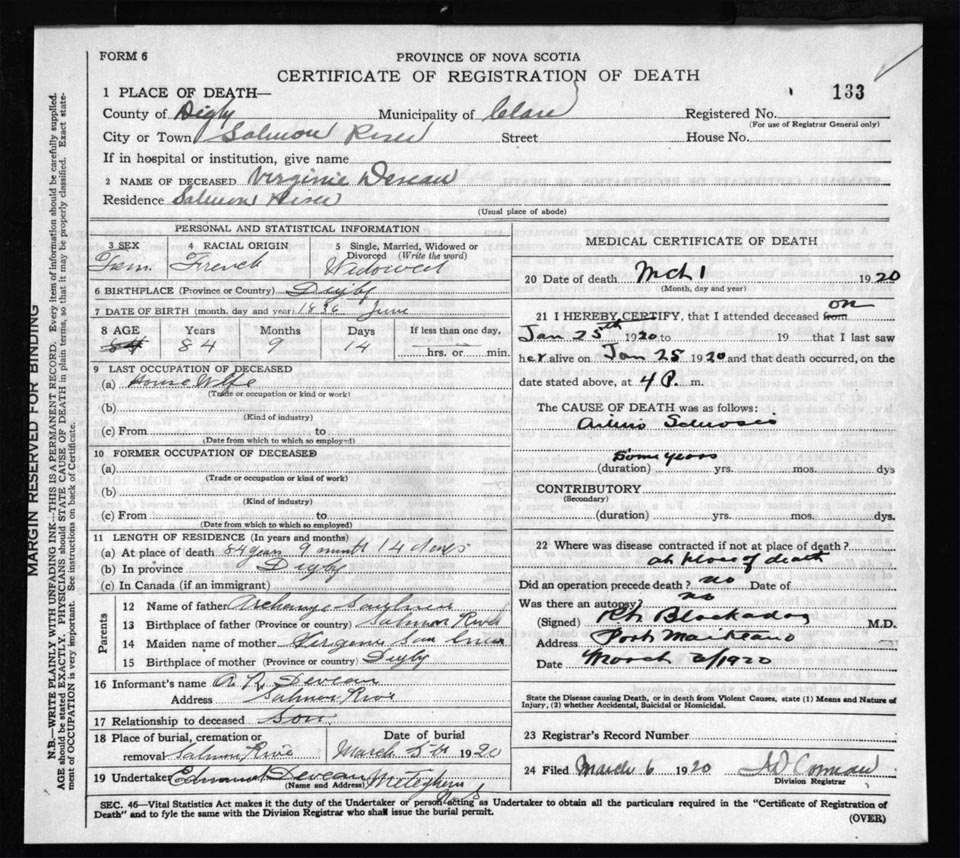 FORM 6
PROVINCE OF NOVA SCOTIA
CERTIFICATE OF REGISTRATION OF DEATH
133
1 PLACE OF DEATH—
County of Digby Municipality of Clare Registered No.
(For use of Registrar General only)
City or Town Salmon River Street House No.
If in hospital or institution, give name
2 NAME OF DECEASED Virginie Deveau
Residence Salmon River
(Usual place of abode)
PERSONAL AND STATISTICAL INFORMATION
3 SEX 4 RACIAL ORIGIN 5 Single, Married, Widowed or Divorced (Write the word)
Fem. French Widowed
6 BIRTHPLACE (Province or Country) Digby
7 DATE OF BIRTH (month, day and year) 1836 June
8 AGE Years Months Days If less than one day,
84 84 9 14 hrs. or min.
9 LAST OCCUPATION OF DECEASED
(a) House Wife
(Trade or occupation or kind or work)
(b)
(Kind of industry)
(c) From to
(Date from which to which so employed)
10 FORMER OCCUPATION OF DECEASED
(a)
(Trade or occupation or kind of work)
(b)
(Kind of industry)
(c) From to
(Date from which to which so employed)
11 LENGTH OF RESIDENCE (In years and months)
(a) At place of death 84 years 9 month 14 days
(b) In province Digby
(c) In Canada (if an immigrant)
Parents
12 Name of father
13 Birthplace of father (Province or country) Salmon River
14 Maiden name of mother Virginie
15 Birthplace of mother (Province or country) Digby
16 Informant's name A R Deveau
Address Salmon River
17 Relationship to deceased Son
18 Place of burial, cremation or removal Salmon River
Date of burial March 5th 1920
19 Undertaker Edmund Deveau Meteghan
(Name and Address)
MEDICAL CERTIFICATE OF DEATH
20 Date of death Mch 1 1920
(Month, day and year)
21 I HEREBY CERTIFY, that I attended deceased from on
Jan 25th 1920 to 19 that I last saw
her alive on Jan 25 1920 and that death occurred, on the
date stated above, at 4 P. m.
The CAUSE OF DEATH was as follows:
Sclerosis
Some years
(duration) yrs. mos. dys
CONTRIBUTORY
(Secondary)
(duration) yrs. mos. dys.
22 Where was disease contracted if not at place of death?
at place of death
Did an operation precede death? no Date of
Was there an autopsy? no
(Signed) M.D.
Address Port Maitland
Date March 2/1920
State the Disease causing Death, or in death from Violent Causes, state (1) Means and Nature of
Injury, (2) whether Accidental, Suicidal or Homicidal.
23 Registrar's Record Number
24 Filed March 6 1920 Comeau
Division Registrar
SEC. 46—Vital Statistics Act makes it the duty of the Undertaker or person acting as Undertaker to obtain all the particulars required in the "Certificate of Registration of
Death" and to fyle the same with the Division Registrar who shall issue the burial permit.
(OVER)
MARGIN RESERVED FOR BINDING
N.B.—WRITE PLAINLY WITH UNFADING INK—THIS IS A PERMANENT RECORD. Every item of information should be carefully supplied.
AGE should be stated EXACTLY. PHYSICIANS should STATE CAUSE OF DEATH in plain terms, so that it may be properly classified. Exact state-
ment of OCCUPATION is very important. See instructions on back of Certificate.